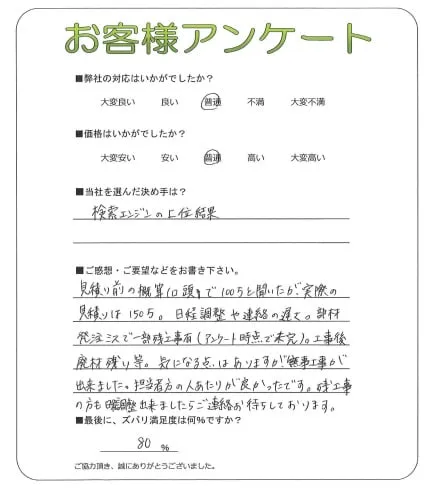 お客様アンケート
■弊社の対応はいかがでしたか?
大変良い 良い 普通 不満 大変不満
■価格はいかがでしたか?
大変安い 安い 普通 高い 大変高い
■当社を選んだ決め手は?
検索エンジンの上位結果
■ご感想・ご要望などをお書き下さい。
見積り前の概算(口頭)で100万と聞いたが、実際の
見積りは150万。日程調整や連絡の遅さ。部材
発注ミスで一部残工事有(アンケート時点で未完)。工事後
廃材残り等。気になる点はありますが無事工事が
出来ました。担当者方の人あたりが良かったです。残工事
の方も調整出来ましたらご連絡お待ちしております。
■最後に、ズバリ満足度は何%ですか?
80 %
ご協力頂き、誠にありがとうございました。